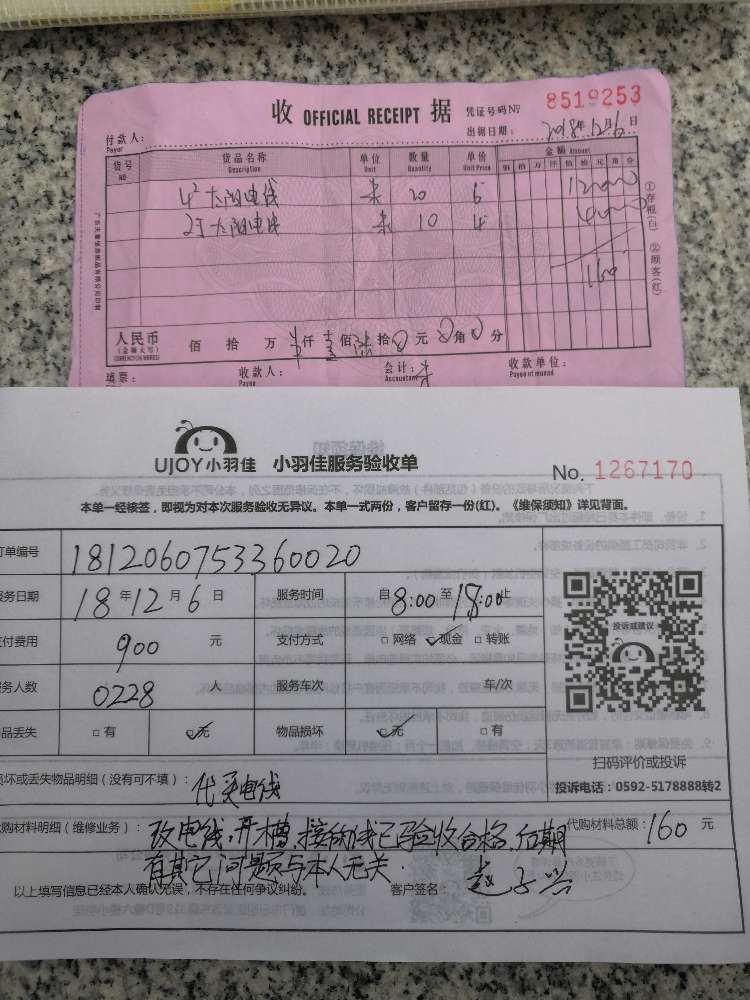 收 OFFICIAL RECEIPT 据 凭证号码№ 8519253
付款人： 出据日期： 2018年12月6日
Payer
货号 货品名称 单位 数量 单价 金额 Amount
NO Description Unit Quantity Unit Price 佰 拾 万 仟 佰 拾 元 角 分
4² 太阳电线 条 20 6 12000
太阳电线 条 10 4 4000
160
①存根(白) ②顾客(红)
人民币 佰 拾 万 仟 壹佰 陆拾 0元 0角 0分
(金额大写)
填票： 收款人： 会计： 收款单位：
Payee Accountant
UJOY小羽佳 小羽佳服务验收单 No. 1267170
本单一经核签，即视为对本次服务验收无异议。本单一式两份，客户留存一份(红)。《维保须知》详见背面。
订单编号 1812060753360020
服务日期 18年12月6日 服务时间 自8:00至18:00止
支付费用 900 元 支付方式 □网络 ✓现金 □转账
服务人数 0228 人 服务车次 车/次
物品丢失 □有 ✓无 物品损坏 ✓无 □有
投诉或建议
扫码评价或投诉
投诉电话：0592-5178888转2
损坏或丢失物品明细（没有可不填）： 代买电线
代购材料明细（维修业务）： 改电线，开槽，接线已验收合格，后期 代购材料总额：160 元
有其它问题与本人无关．
以上填写信息已经本人确认无误，不存在任何争议纠纷。 客户签名：